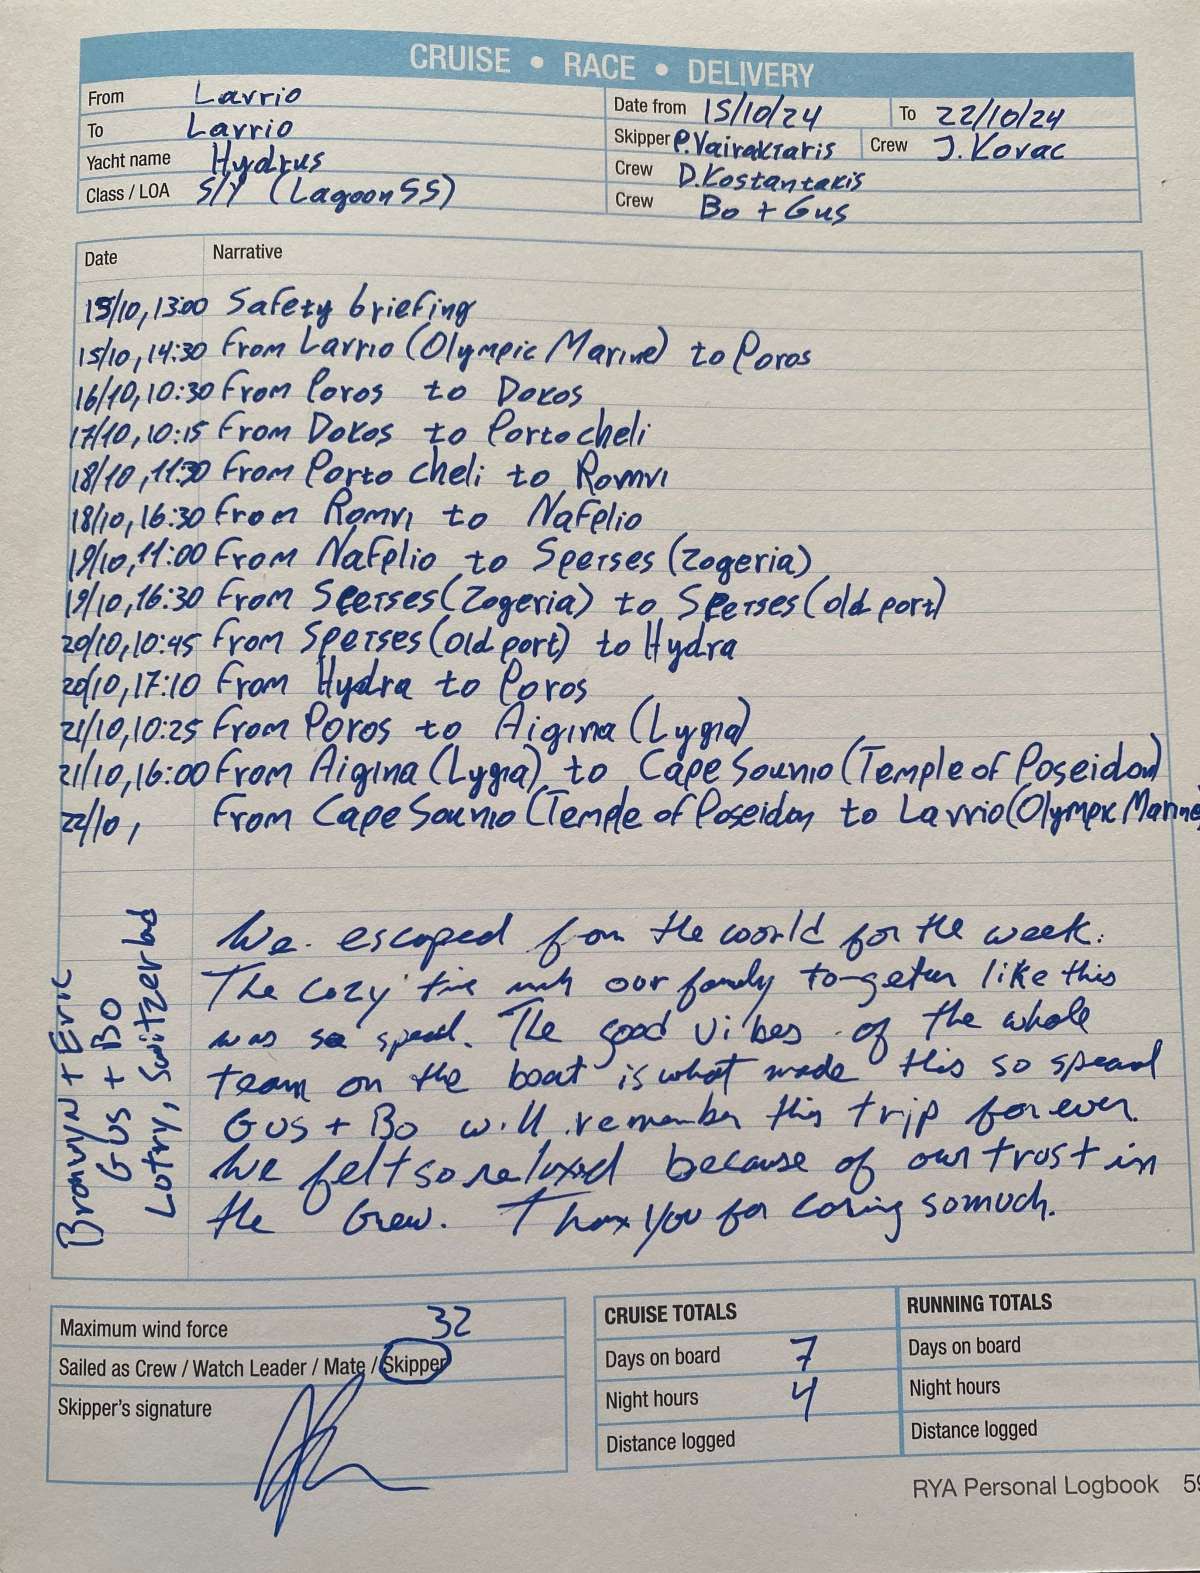 CRUISE • RACE • DELIVERY
From Lavrio
Date from 15/10/24 To 22/10/24
To Lavrio
Skipper P.Vairaktaris Crew J. Kovac
Yacht name Hydrus
Crew D.Kostantakis
Class / LOA S/Y (Lagoon 55)
Crew Bo + Gus
Date Narrative
15/10, 13:00 Safety briefing
15/10, 14:30 From Lavrio (Olympic Marine) to Poros
16/10, 10:30 From Poros to Dokos
17/10, 10:15 From Dokos to Portocheli
18/10, 11:30 From Porto cheli to Romvi
18/10, 16:30 From Romvi to Nafplio
19/10, 11:00 From Nafplio to Spetses (Zogeria)
19/10, 16:30 From Spetses (Zogeria) to Spetses (old port)
20/10, 10:45 From Spetses (old port) to Hydra
20/10, 17:10 From Hydra to Poros
21/10, 10:25 From Poros to Aigina (Lygia)
21/10, 16:00 From Aigina (Lygia) to Cape Sounio (Temple of Poseidon)
22/10, From Cape Sounio (Temple of Poseidon to Lavrio (Olympic Marine
We escaped from the world for the week.
The cozy time with our family together like this
was so special. The good vibes of the whole
team on the boat is what made this so special
Gus + Bo will remember this trip forever.
We felt so relaxed because of our trust in
the Crew. Thank You for caring so much.
Bronwyn + Eric
Gus + Bo
Switzerland
Maximum wind force 32
Sailed as Crew / Watch Leader / Mate / Skipper
Skipper's signature
CRUISE TOTALS
Days on board 7
Night hours 4
Distance logged
RUNNING TOTALS
Days on board
Night hours
Distance logged
RYA Personal Logbook 59